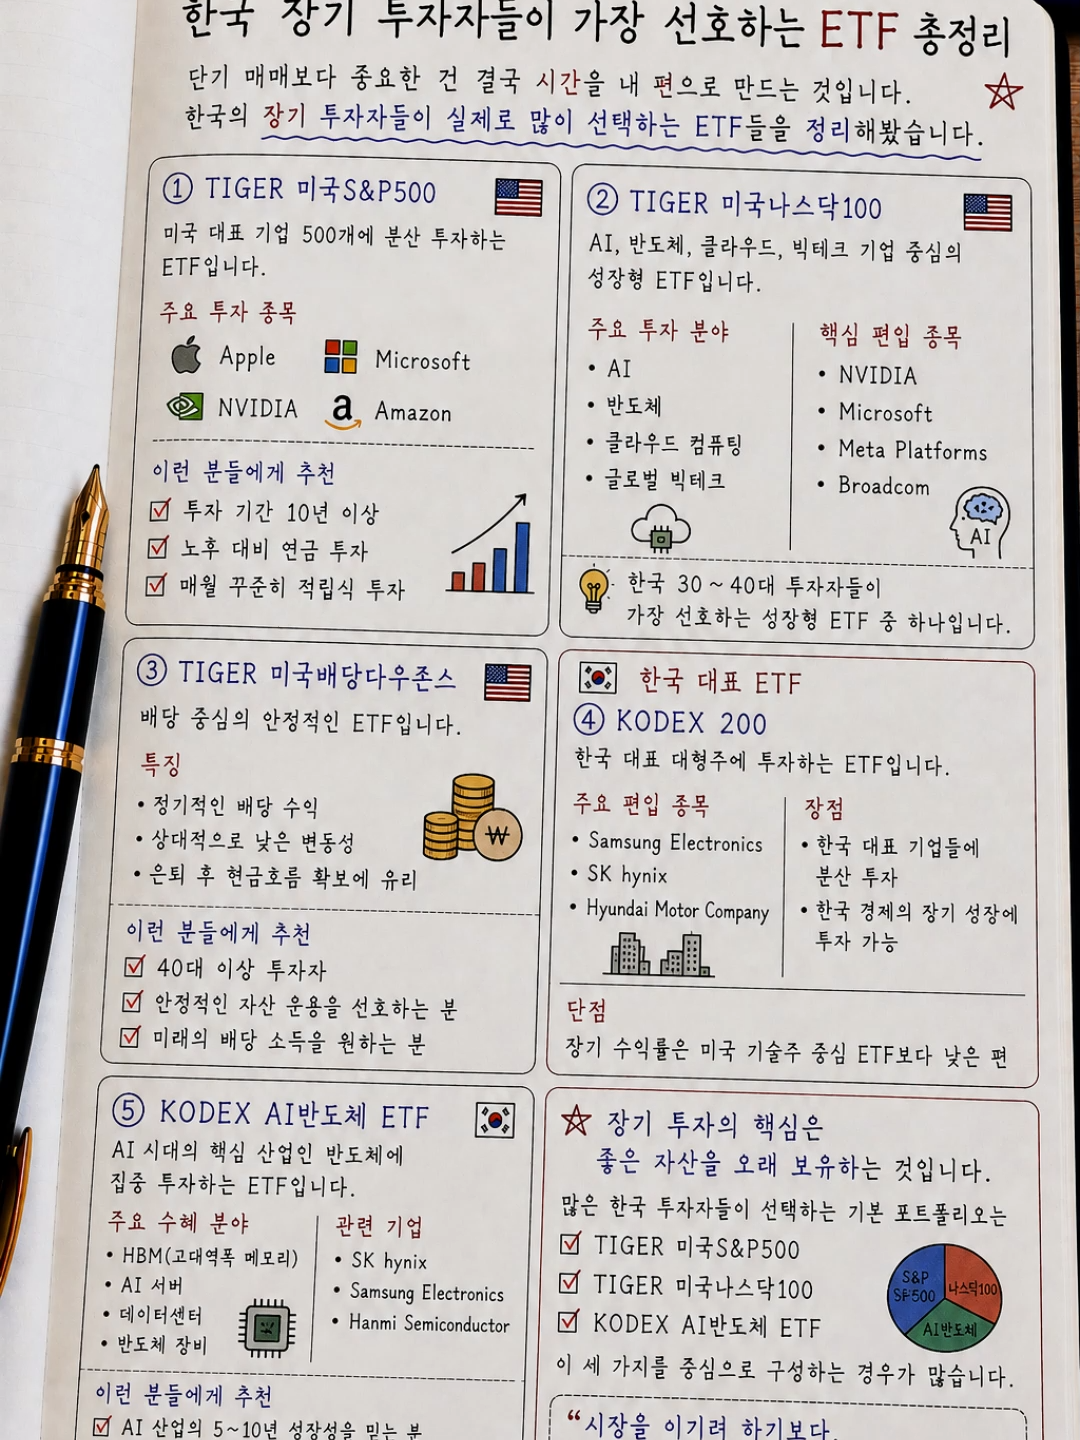 한국 장기 투자자들이 가장 선호하는 ETF 총정리
단기 매매보다 중요한 건 결국 시간을 내 편으로 만드는 것입니다.
한국의 장기 투자자들이 실제로 많이 선택하는 ETF들을 정리해봤습니다.
① TIGER 미국S&P500
미국 대표 기업 500개에 분산 투자하는
ETF입니다.
주요 투자 종목
Apple
Microsoft
NVIDIA
a Amazon
이런 분들에게 추천
투자 기간 10년 이상
노후 대비 연금 투자
매월 꾸준히 적립식 투자
② TIGER 미국나스닥100
AI, 반도체, 클라우드, 빅테크 기업 중심의
성장형 ETF입니다.
주요 투자 분야
• AI
• 반도체
• 클라우드 컴퓨팅
• 글로벌 빅테크
핵심 편입 종목
• NVIDIA
• Microsoft
• Meta Platforms
• Broadcom
AI
한국 30 ~ 40대 투자자들이
가장 선호하는 성장형 ETF 중 하나입니다.
③ TIGER 미국배당다우존스
배당 중심의 안정적인 ETF입니다.
특징
• 정기적인 배당 수익
• 상대적으로 낮은 변동성
• 은퇴 후 현금흐름 확보에 유리
₩
이런 분들에게 추천
40대 이상 투자자
안정적인 자산 운용을 선호하는 분
미래의 배당 소득을 원하는 분
한국 대표 ETF
④ KODEX 200
한국 대표 대형주에 투자하는 ETF입니다.
주요 편입 종목
• Samsung Electronics
• SK hynix
• Hyundai Motor Company
장점
• 한국 대표 기업들에
분산 투자
• 한국 경제의 장기 성장에
투자 가능
단점
장기 수익률은 미국 기술주 중심 ETF보다 낮은 편
⑤ KODEX AI반도체 ETF
AI 시대의 핵심 산업인 반도체에
집중 투자하는 ETF입니다.
주요 수혜 분야
• HBM(고대역폭 메모리)
• AI 서버
• 데이터센터
• 반도체 장비
관련 기업
• SK hynix
• Samsung Electronics
• Hanmi Semiconductor
이런 분들에게 추천
AI 산업의 5~10년 성장성을 믿는 분
장기 투자의 핵심은
좋은 자산을 오래 보유하는 것입니다.
많은 한국 투자자들이 선택하는 기본 포트폴리오는
TIGER 미국S&P500
TIGER 미국나스닥100
KODEX AI반도체 ETF
S&P
500
나스닥100
AI반도체
이 세 가지를 중심으로 구성하는 경우가 많습니다.
“시장을 이기려 하기보다,